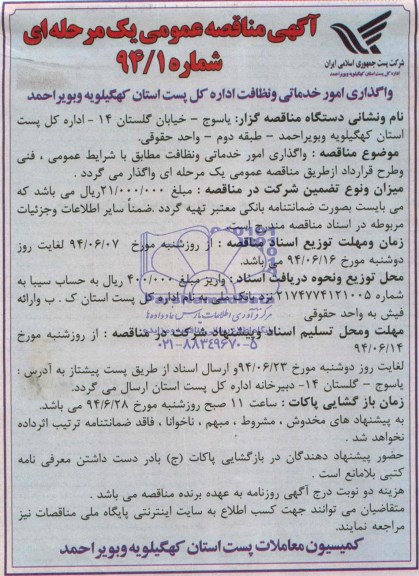 شرکت پست جمهوری اسلامی ایران
اداره کل پست استان کهگیلویه وبویراحمد
آگهی مناقصه عمومی یک مرحله ای
شماره ۹۴/۱
واگذاری امور خدماتی ونظافت اداره کل پست استان کهگیلویه وبویراحمد
نام ونشانی دستگاه مناقصه گزار: یاسوج – خیابان گلستان ۱۴ - اداره کل پست
استان کهگیلویه وبویراحمد – طبقه دوم – واحد حقوقی.
موضوع مناقصه : واگذاری امور خدماتی ونظافت مطابق با شرایط عمومی ، فنی
وطرح قرارداد ازطریق مناقصه عمومی یک مرحله ای واگذار می گردد .
میزان ونوع تضمین شرکت در مناقصه : مبلغ ۲۱/۰۰۰/۰۰۰ریال می باشد که
می بایست بصورت ضمانتنامه بانکی معتبر تهیه گردد .ضمناً سایر اطلاعات وجزئیات
مربوطه در اسناد مناقصه مندرج است
زمان ومهلت توزیع اسناد مناقصه : از روزشنبه مورخ ۹۴/۰۶/۰۷ لغایت روز
دوشنبه مورخ ۹۴/۰۶/۱۶ می باشد.
محل توزیع ونحوه دریافت اسناد : واریز مبلغ ۴۰۰/۰۰۰ ریال به حساب سیبا به
شماره ۲۱۷۴۷۷۴۱۲۱۰۰۵ نزد بانک ملی به نام اداره کل پست استان ک . ب وارائه
فیش به واحد حقوقی
مهلت ومحل تسلیم اسناد وپیشنهاد شرکت در مناقصه : از روزشنبه مورخ
۹۴/۰۶/۱۴
۰۲۱-۸۸۳۴۹۶۷۰-۵
لغایت روز دوشنبه مورخ ۹۴/۰۶/۲۳و ارسال اسناد از طریق پست پیشتاز به آدرس :
یاسوج – گلستان ۱۴- دبیرخانه اداره کل پست استان ارسال می گردد.
زمان باز گشایی پاکات : ساعت ۱۱ صبح روزشنبه مورخ ۹۴/۶/۲۸ می باشد.
به پیشنهاد های مخدوش ، مشروط ، مبهم ، ناخوانا ، فاقد ضمانتنامه ترتیب اثرداده
نخواهد شد .
حضور پیشنهاد دهندگان در بازگشایی پاکات (ج) بادر دست داشتن معرفی نامه
کتبی بلامانع است .
هزینه دو نوبت درج آگهی روزنامه به عهده برنده مناقصه می باشد .
متقاضیان می توانند جهت کسب اطلاع به سایت اینترنتی پایگاه ملی مناقصات نیز
مراجعه نمایند.
کمیسیون معاملات پست استان کهگیلویه وبویراحمد